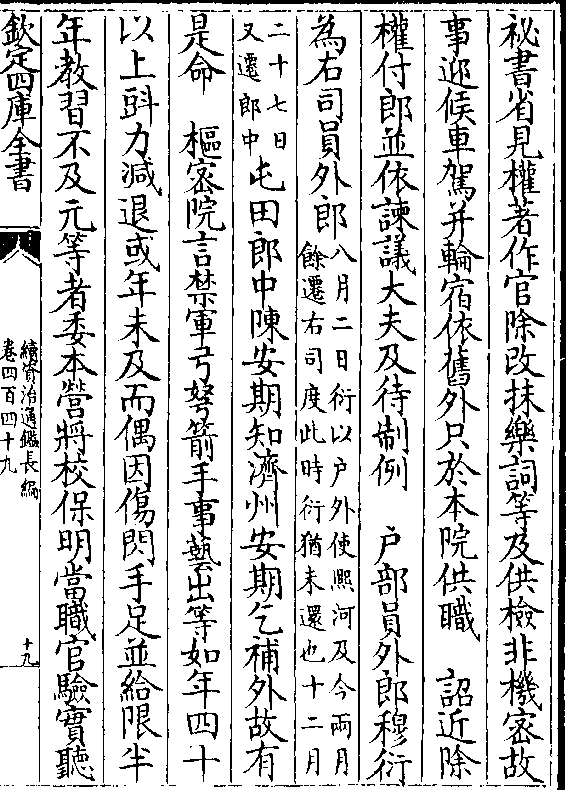 秘書省見權著作官除改抹樂詞等及供檢非機宻故
事迎候車駕并輪宿依舊外只於本院供職　詔近除
權付郎並依諫議大夫及待制例　户部員外郎穆衍
為右司員外郎八月二日衍以户外使熈河及今兩月
餘遷右司度此時衍猶未還也十二月
二十七日
又遷郎中屯田郎中陳安期知濟州安期乞補外故有
是命　樞宻院言禁軍弓弩箭手事藝出等如年四十
以上㪷力減退或年未及而偶因傷閃手足並給限半
年教習不及元等者委本營將校保明當職官驗實聽
欽定四庫全書
續資治通鑑長編
卷四百四十九
十九